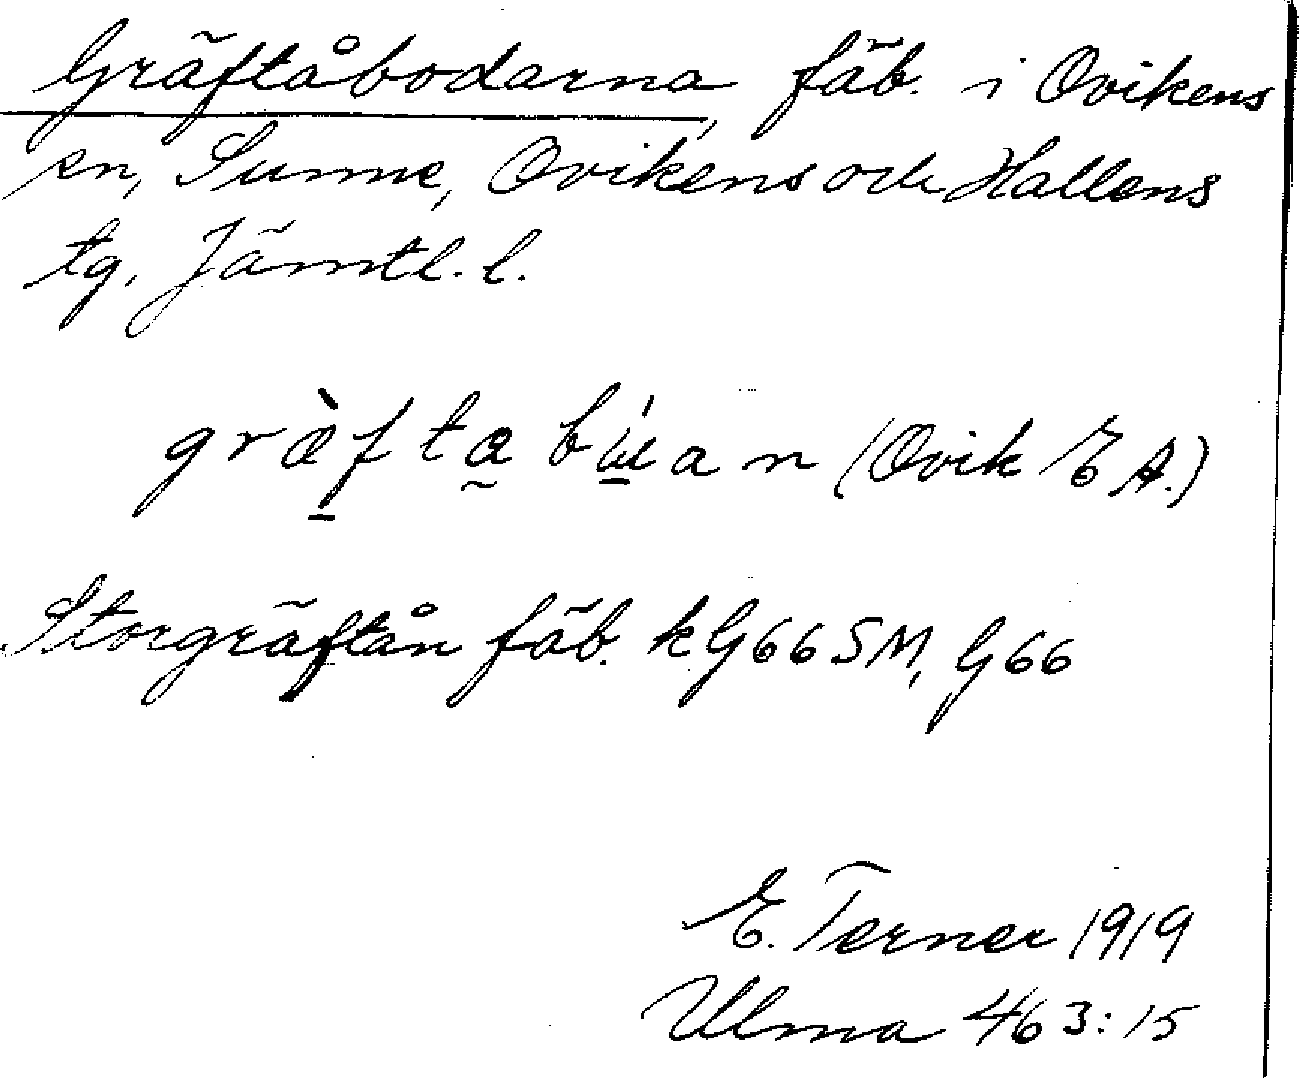 Gräftåbodarna, fäb. i Ovikens
sn, Sunne, Ovikens och Hallens
tg, Jämtl. l.
(Ovik E A.)
Storgräftån fäb. kG66SM, G66
E. Terner 1919
Ulma 463:15